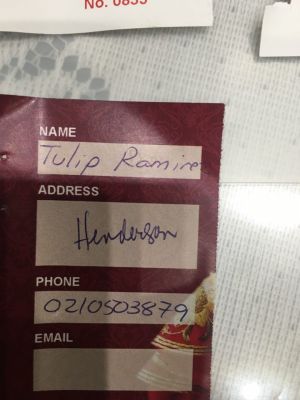 No. 0853
NAME
Tulip Ramire
ADDRESS
Henderson
PHONE
0210503879
EMAIL